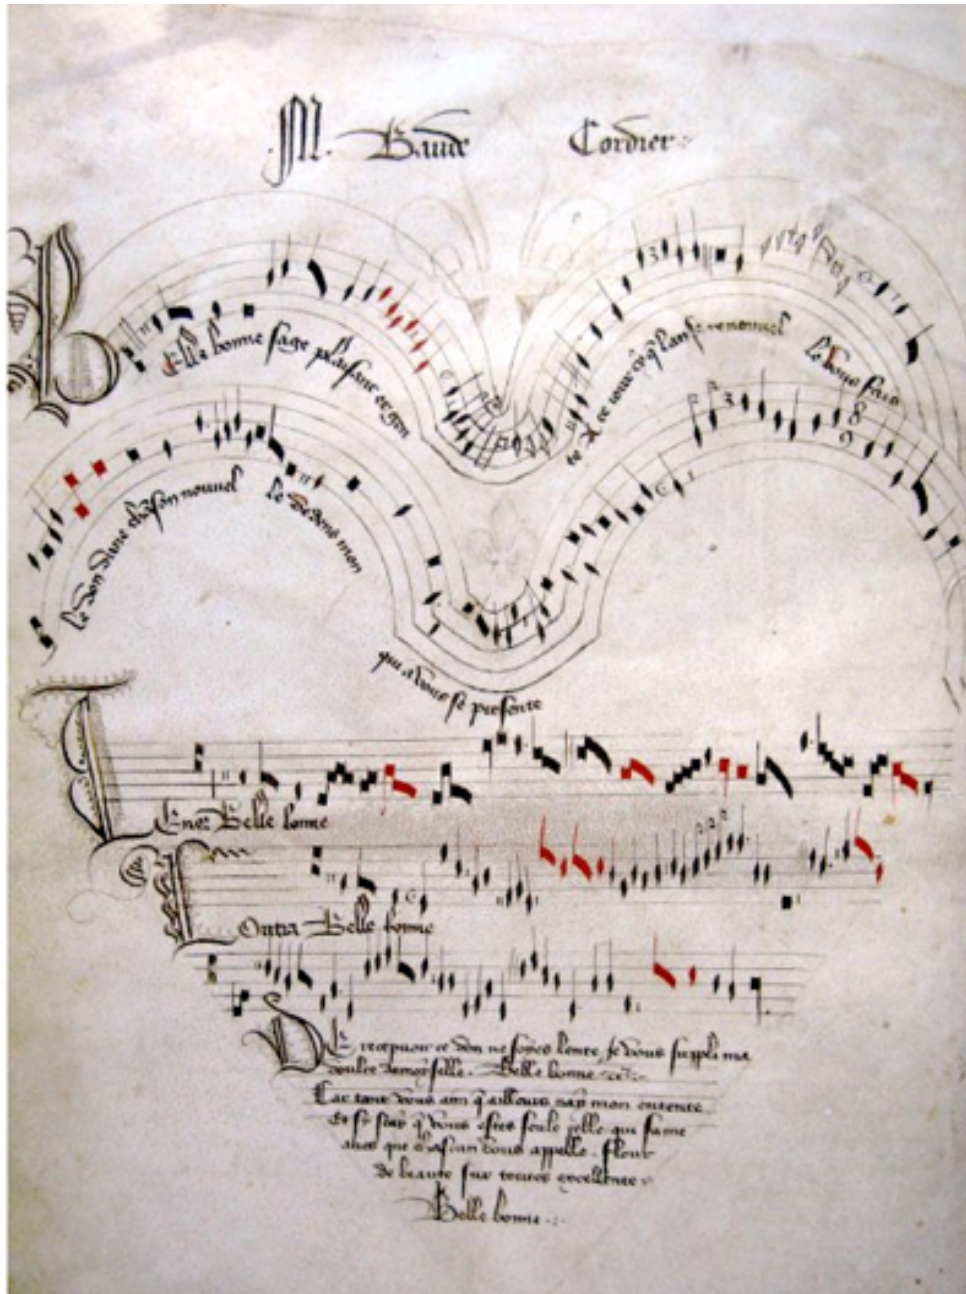 M. Baude Cordier
Belle bonne sage plaisant et gen
te A ce jour cy q lan se renouvel
le Vous fais
le don dune chāson nouvel
le Dedens mon
qui a vous se presente
Tenor Belle bonne
Contra Belle bonne
De recepvoir ce don ne soyes lente Je vous suppli ma
doulce damoyselle. Belle bonne
Car tant vous aim q ailleurs nay mon entente
Et sy scay q vous estes seule celle qui fame
aves que chascun vous appelle. Flour
de beaute sur toutes excellente
Belle bonne